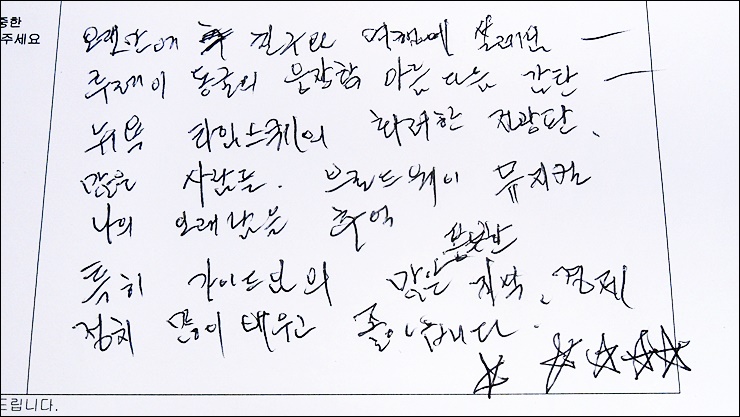 중한
주세요
오랜만에 친구와 여행에 설레임 —
루레이 동굴의 웅장함 아름다음 감탄 —
뉴욕 타임스퀘어 화려한 전광판.
많은 사람들. 브로드웨이 뮤지컬
나의 오래남을 추억
풍부한
특히 가이드님의 많은 지식, 경제
정치 많이 배우고 좋았습니다.
드립니다.